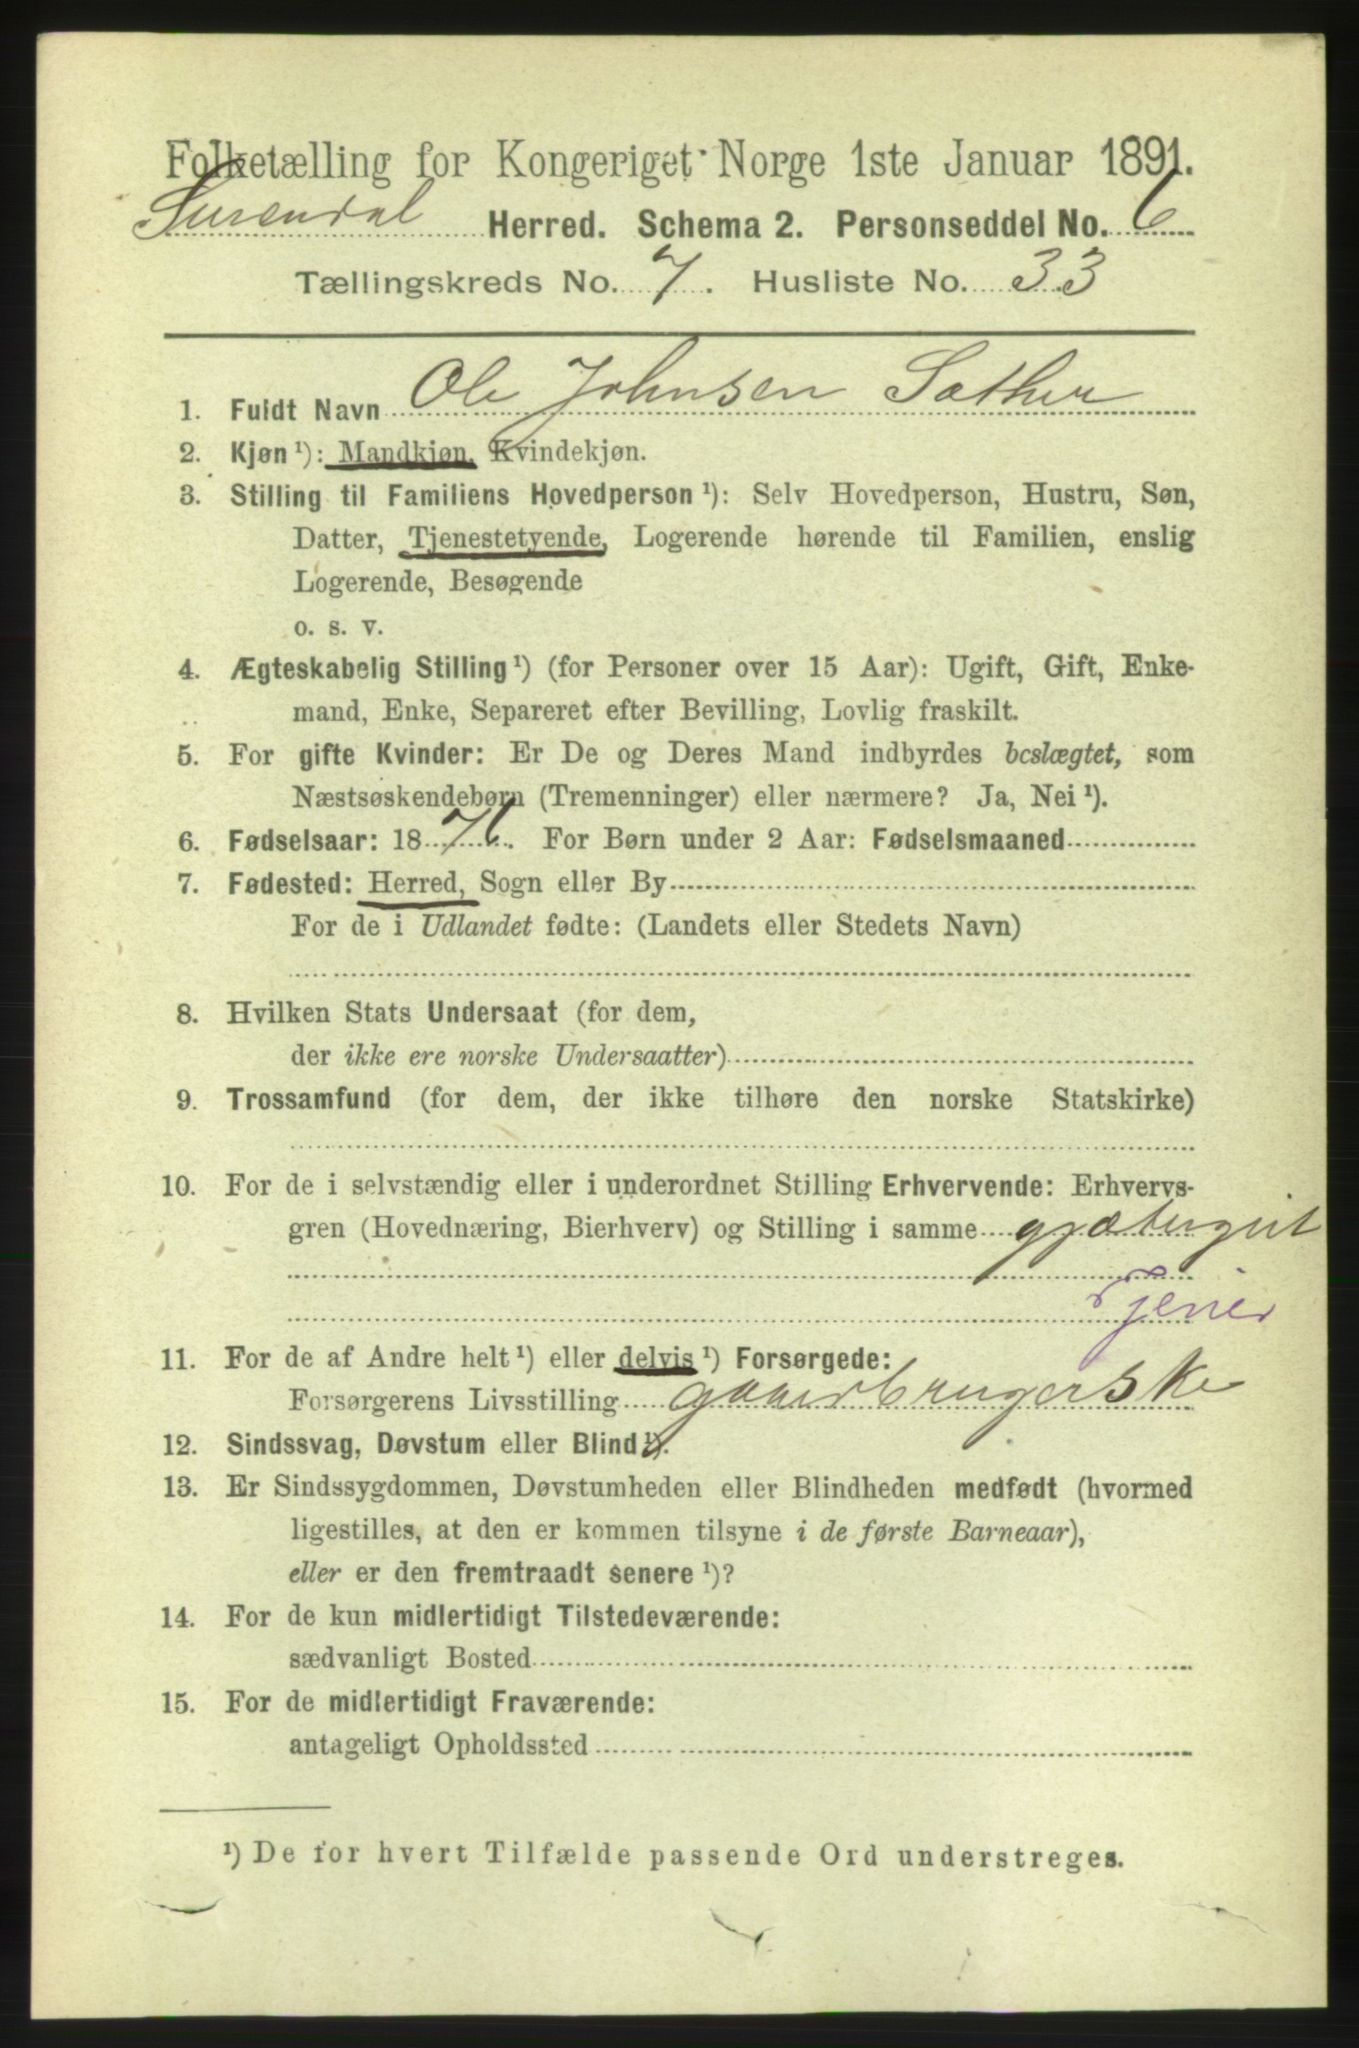 Folketælling for Kongeriget Norge 1ste Januar 1891.
Surendal Herred. Schema 2. Personseddel No. 6
Tællingskreds No. 7. Husliste No. 33
1. Fuldt Navn Ole Johnsen Sæther
2. Kjøn ¹): Mandkjøn, Kvindekjøn.
3. Stilling til Familiens Hovedperson ¹): Selv Hovedperson, Hustru, Søn,
Datter, Tjenestetyende, Logerende hørende til Familien, enslig
Logerende, Besøgende
o. s. v.
4. Ægteskabelig Stilling ¹) (for Personer over 15 Aar): Ugift, Gift, Enke-
mand, Enke, Separeret efter Bevilling, Lovlig fraskilt.
5. For gifte Kvinder: Er De og Deres Mand indbyrdes beslægtet, som
Næstsøskendebørn (Tremenninger) eller nærmere? Ja, Nei ¹).
6. Fødselsaar: 1876. For Børn under 2 Aar: Fødselsmaaned
7. Fødested: Herred, Sogn eller By
For de i Udlandet fødte: (Landets eller Stedets Navn)
8. Hvilken Stats Undersaat (for dem,
der ikke ere norske Undersaatter)
9. Trossamfund (for dem, der ikke tilhøre den norske Statskirke)
10. For de i selvstændig eller i underordnet Stilling Erhvervende: Erhvervs-
gren (Hovednæring, Bierhverv) og Stilling i samme gjætergut
Tjener
11. For de af Andre helt ¹) eller delvis ¹) Forsørgede:
Forsørgerens Livsstilling gaardbrugerske
12. Sindssvag, Døvstum eller Blind ¹).
13. Er Sindssygdommen, Døvstumheden eller Blindheden medfødt (hvormed
ligestilles, at den er kommen tilsyne i de første Barneaar),
eller er den fremtraadt senere ¹)?
14. For de kun midlertidigt Tilstedeværende:
sædvanligt Bosted
15. For de midlertidigt Fraværende:
antageligt Opholdssted
¹) De for hvert Tilfælde passende Ord understreges.